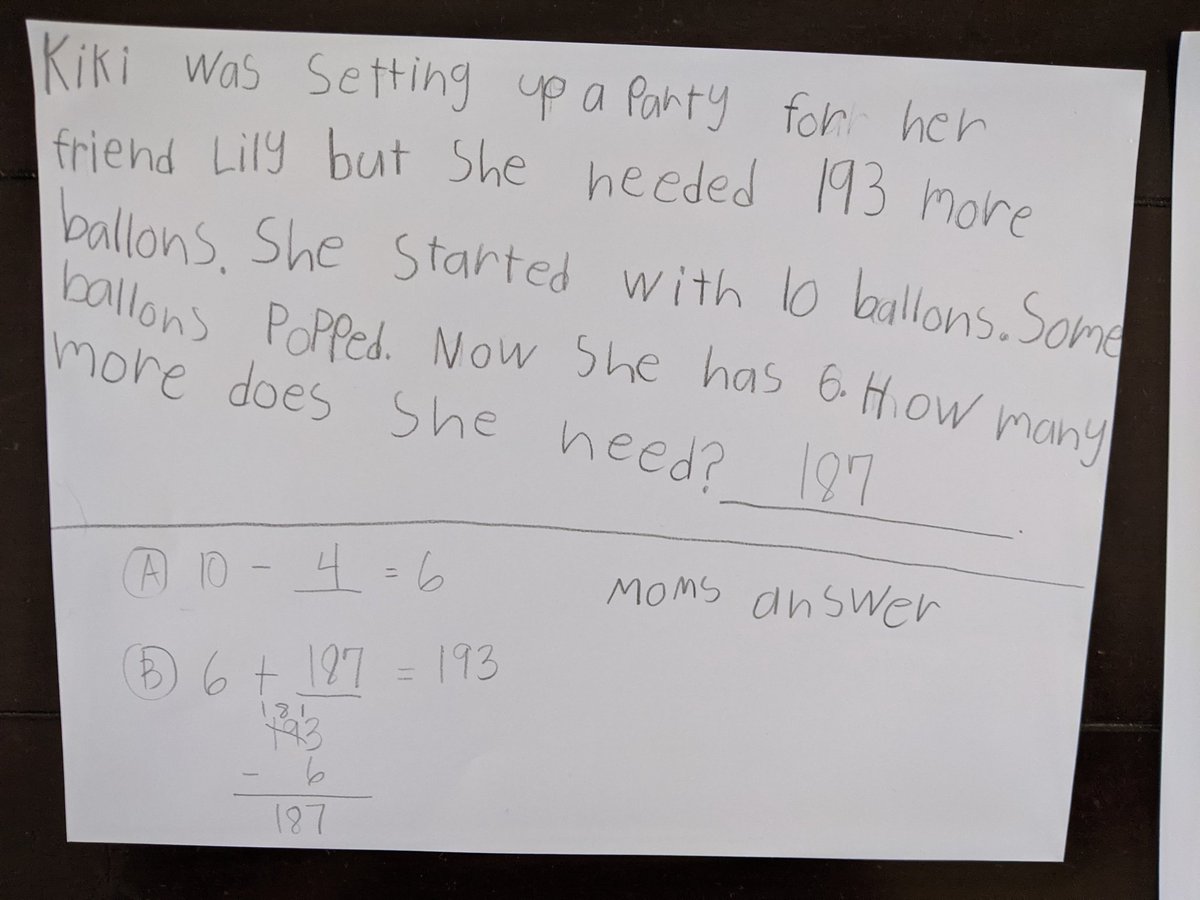 Kiki was setting up a Party for her
friend Lily but she needed 193 more
ballons. She started with 10 ballons. Some
ballons Popped. Now she has 6. How many
more does she need? 187
(A) 10 - 4 = 6
moms answer
(B) 6 + 187 = 193
1 8 1
193
- 6
187